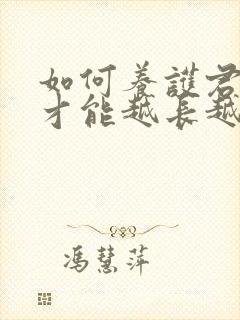 如何养護君
才能越长越
馮慧萍